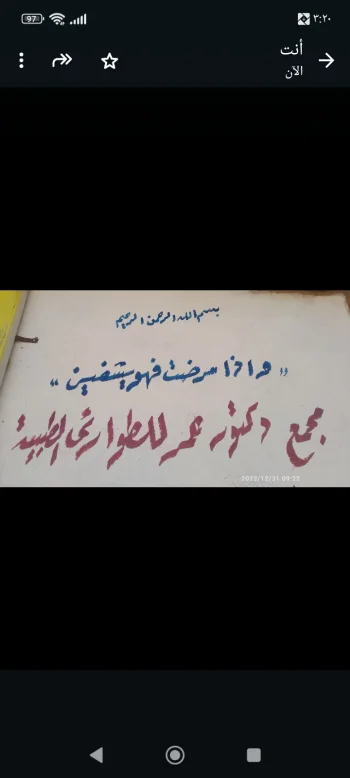 97
٣:٢٠
أنت
الآن
بسم الله الرحمن الرحيم
"واذا مرضت فهو يشفين"
مجمع دكتور عمر للطوارئ الطبية
2022/12/31 09:22